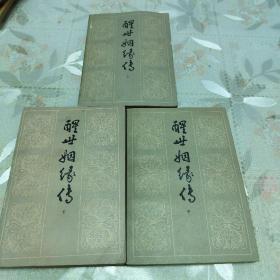 醒世姻缘传
醒世姻缘传
下
醒世姻缘传
中